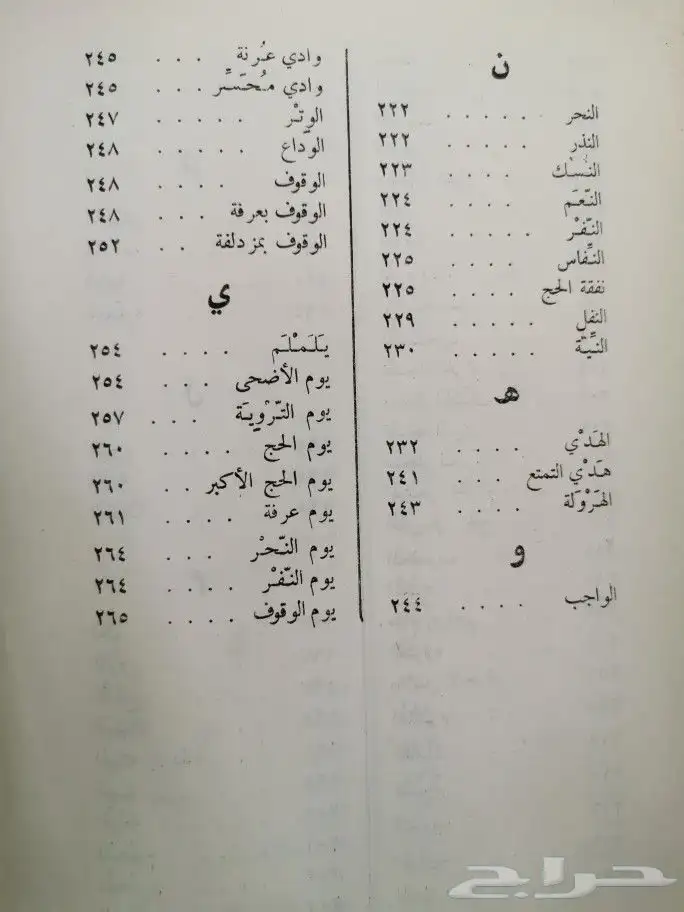 ن
النحر . . . . . ٢٢٢
النذر . . . . . ٢٢٢
النُسْك . . . . ٢٢٣
النَّعَم . . . . ٢٢٤
النَّفْر . . . . . ٢٢٤
النِّفاس . . . . ٢٢٥
نفقة الحج . . . . ٢٢٥
النفل . . . . . ٢٢٩
النِّيَّة . . . . . ٢٣٠
هـ
الهَدْي . . . . ٢٣٢
هَدْي التمتع . . . ٢٤١
الهَرْوَلة . . . . ٢٤٣
و
الواجب . . . . ٢٤٤
وادي عُرنة . . . ٢٤٥
وادي مُحَسِّر . . . ٢٤٥
الوتْر . . . . . ٢٤٧
الوَداع . . . . . ٢٤٨
الوقوف . . . . ٢٤٨
الوقوف بعرفة . . . ٢٤٨
الوقوف بمزدلفة . . ٢٥٢
ي
يَلَمْلَم . . . . ٢٥٤
يوم الأضحى . . . ٢٥٤
يوم التّرْوِيَة . . . ٢٥٧
يوم الحج . . . . ٢٦٠
يوم الحج الأكبر . . ٢٦٠
يوم عرفة . . . . ٢٦١
يوم النّحْر . . . ٢٦٤
يوم النّفْر . . . . ٢٦٤
يوم الوقوف . . . . ٢٦٥
حراج